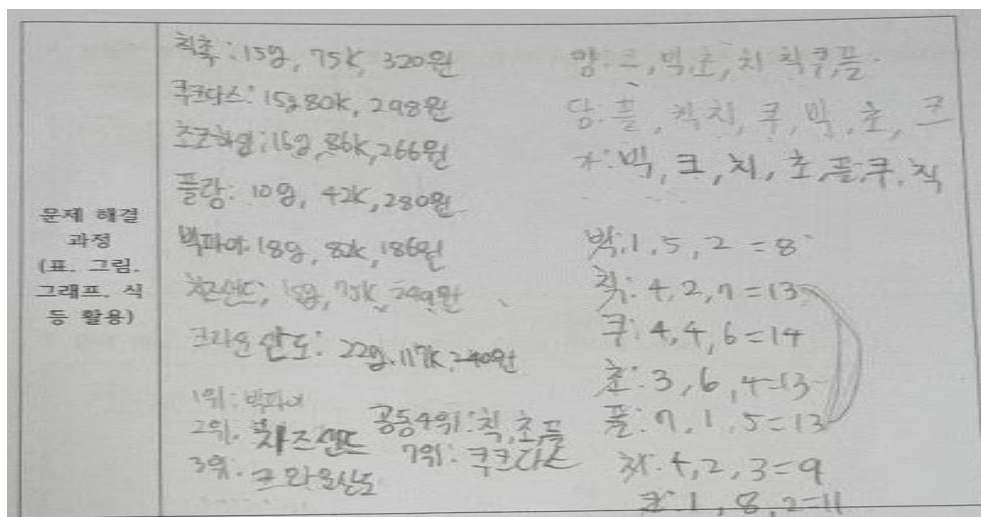 문제 해결
과정
(표, 그림,
그래프, 식
등 활용)
칙촉: 15g, 75k, 320원
쿠크다스: 15g, 80k, 298원
초코하임: 16g, 86k, 266원
플랑: 10g, 42k, 280원
빅파이: 18g, 82k, 186원
치즈샌드: 15g, 75k, 249원
크라운산도: 22g, 117k, 240원
1위: 빅파이
2위: 치즈샌드
3위: 크라운산도
공동4위: 칙, 초, 플
7위: 쿠크다스
양: 크, 빅, 초, 치 칙 쿠, 플
당: 플, 칙 치, 쿠, 빅, 초, 크
가: 빅, 크, 치, 초, 플, 쿠, 칙
빅: 1, 5, 2 = 8
칙: 4, 2, 7 = 13
쿠: 4, 4, 6 = 14
초: 3, 6, 4 = 13
플: 7, 1, 5 = 13
치: 4, 2, 3 = 9
크: 1, 8, 2 = 11